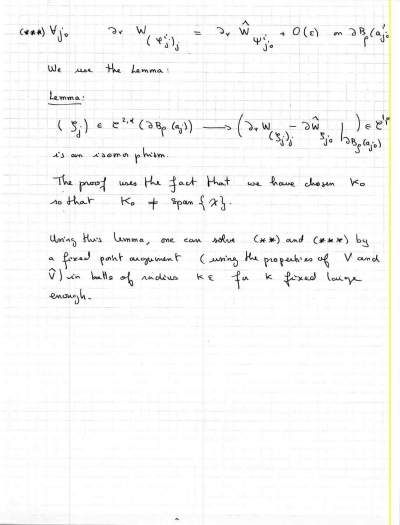 (***) ∀j₀ ∂ᵣ W_(ψ'_j)_j = ∂ᵣ Ŵ_ψ'_j₀ + O(ε) on ∂B_ρ(a'_j₀
We use the Lemma:
Lemma:
(ξ_j) ∈ C^{2,α}(∂B_ρ(a_j)) ⟶ (∂ᵣ W_(ξ_j)_j − ∂Ŵ_ξ_j₀ |_∂B_ρ(a_j₀)) ∈ C^{1,
is an isomorphism.
The proof uses the fact that we have chosen K₀
so that K₀ ≠ span {X}.
Using this lemma, one can solve (**) and (***) by
a fixed point argument (using the properties of V and
V̂) in balls of radius κε for κ fixed large
enough.